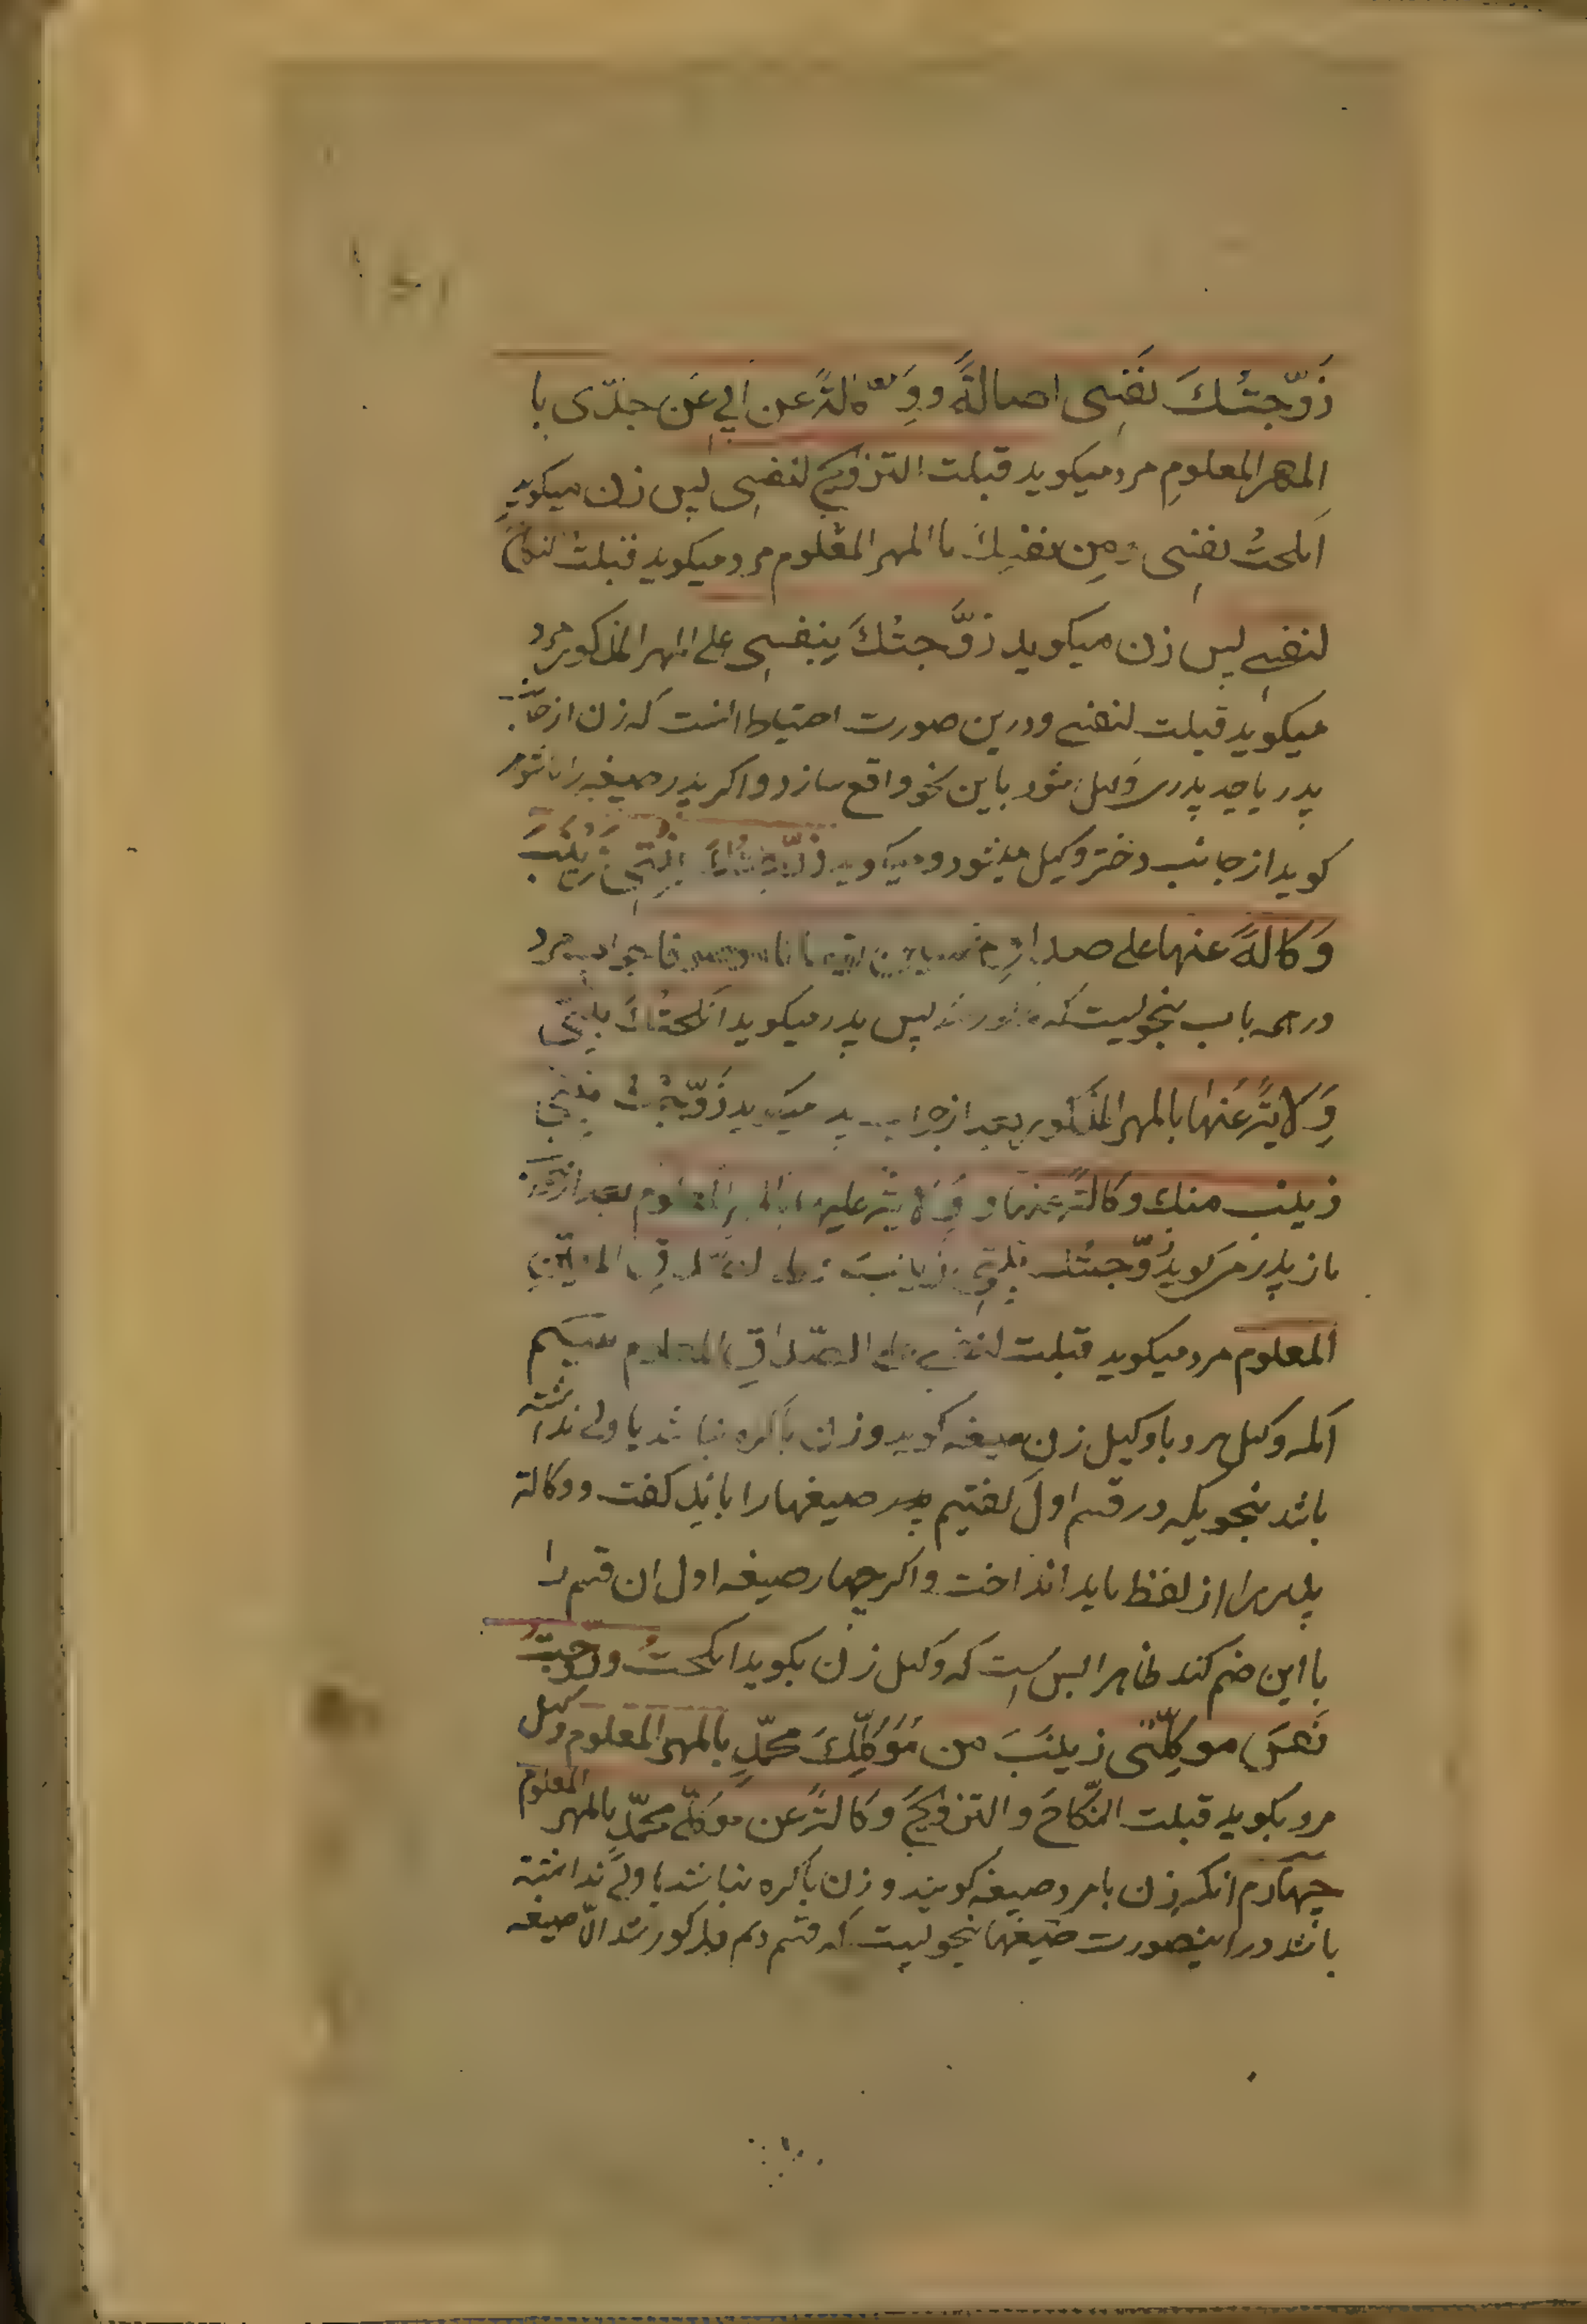 زَوَّجتُكَ نَفسِی اصالةً وَوِکالةً عن ابي عَن جدّی با
المهر المعلومِ مرد میکوید قبلت التزویج لنفسِی پس زن میکوید
انکحتُ نفسِی مِن نفسِكَ باالمهر المعلوم مرد میکوید قبلتُ النکاح
لنفسے پس زن میکوید زوَّجتُكَ بِنفسِی علی المهر المذکور مرد
میکوید قبلت لنفسے و درین صورت احتیاط انست که زن از جانب
پدر یا جد پدرے وکیل شود باین نحو واقع سازد و اکر پدر صیغه را با شوهر
کوید از جانب دختر وکیل میشود و میکوید زَوَّجتُكَ بِنتِی زَینَبَ
وَکالةً عنها علی جواب مرد
در همه باب بنحویست که مذکور شد پس پدر میکوید انکحتُكَ بِنتِی
وِلایةً عَنها بالمهر المذکور بعد از جواب میکوید زَوَّجتُ بنتِی
زینب منك وکالةً عنها و وِلایةً علیها بالمهر المعلوم بعد از
باز پدر میکوید زَوَّجتُكَ بِنتِی زینبَ
المعلوم مرد میکوید قبلت لنفسے علی الصّداقِ المعلوم سیم
آنکه وکیل مرد با وکیل زن صیغه کوید و زن باکره نباشد یا ولی نداشته
باشد بنحویکه در قسم اول کفتیم صیغهارا باید کفت و وکالة
پدر را از لفظ باید انداخت و اکر چهار صیغه اول ان قسم را
با این ضم کند ظاهرا بس است که وکیل زن بکوید انکحتُ وزوجتُ
نَفسَ موکِلّتی زینَبَ من مُوَکِّلِكَ محمّدٍ بالمهر المعلوم وکیل
مرد بکوید قبلت النّکاحَ و التزویجَ وَکالةً عن مُوَکِّلِی محمّدٍ بالمهر المعلوم
چهارم انکه زن با مرد صیغه کویند و زن باکره نباشد یا ولی نداشته
باشد در اینصورت صیغها بنحویست که قسم دیم مذکور شد الّا صیغه